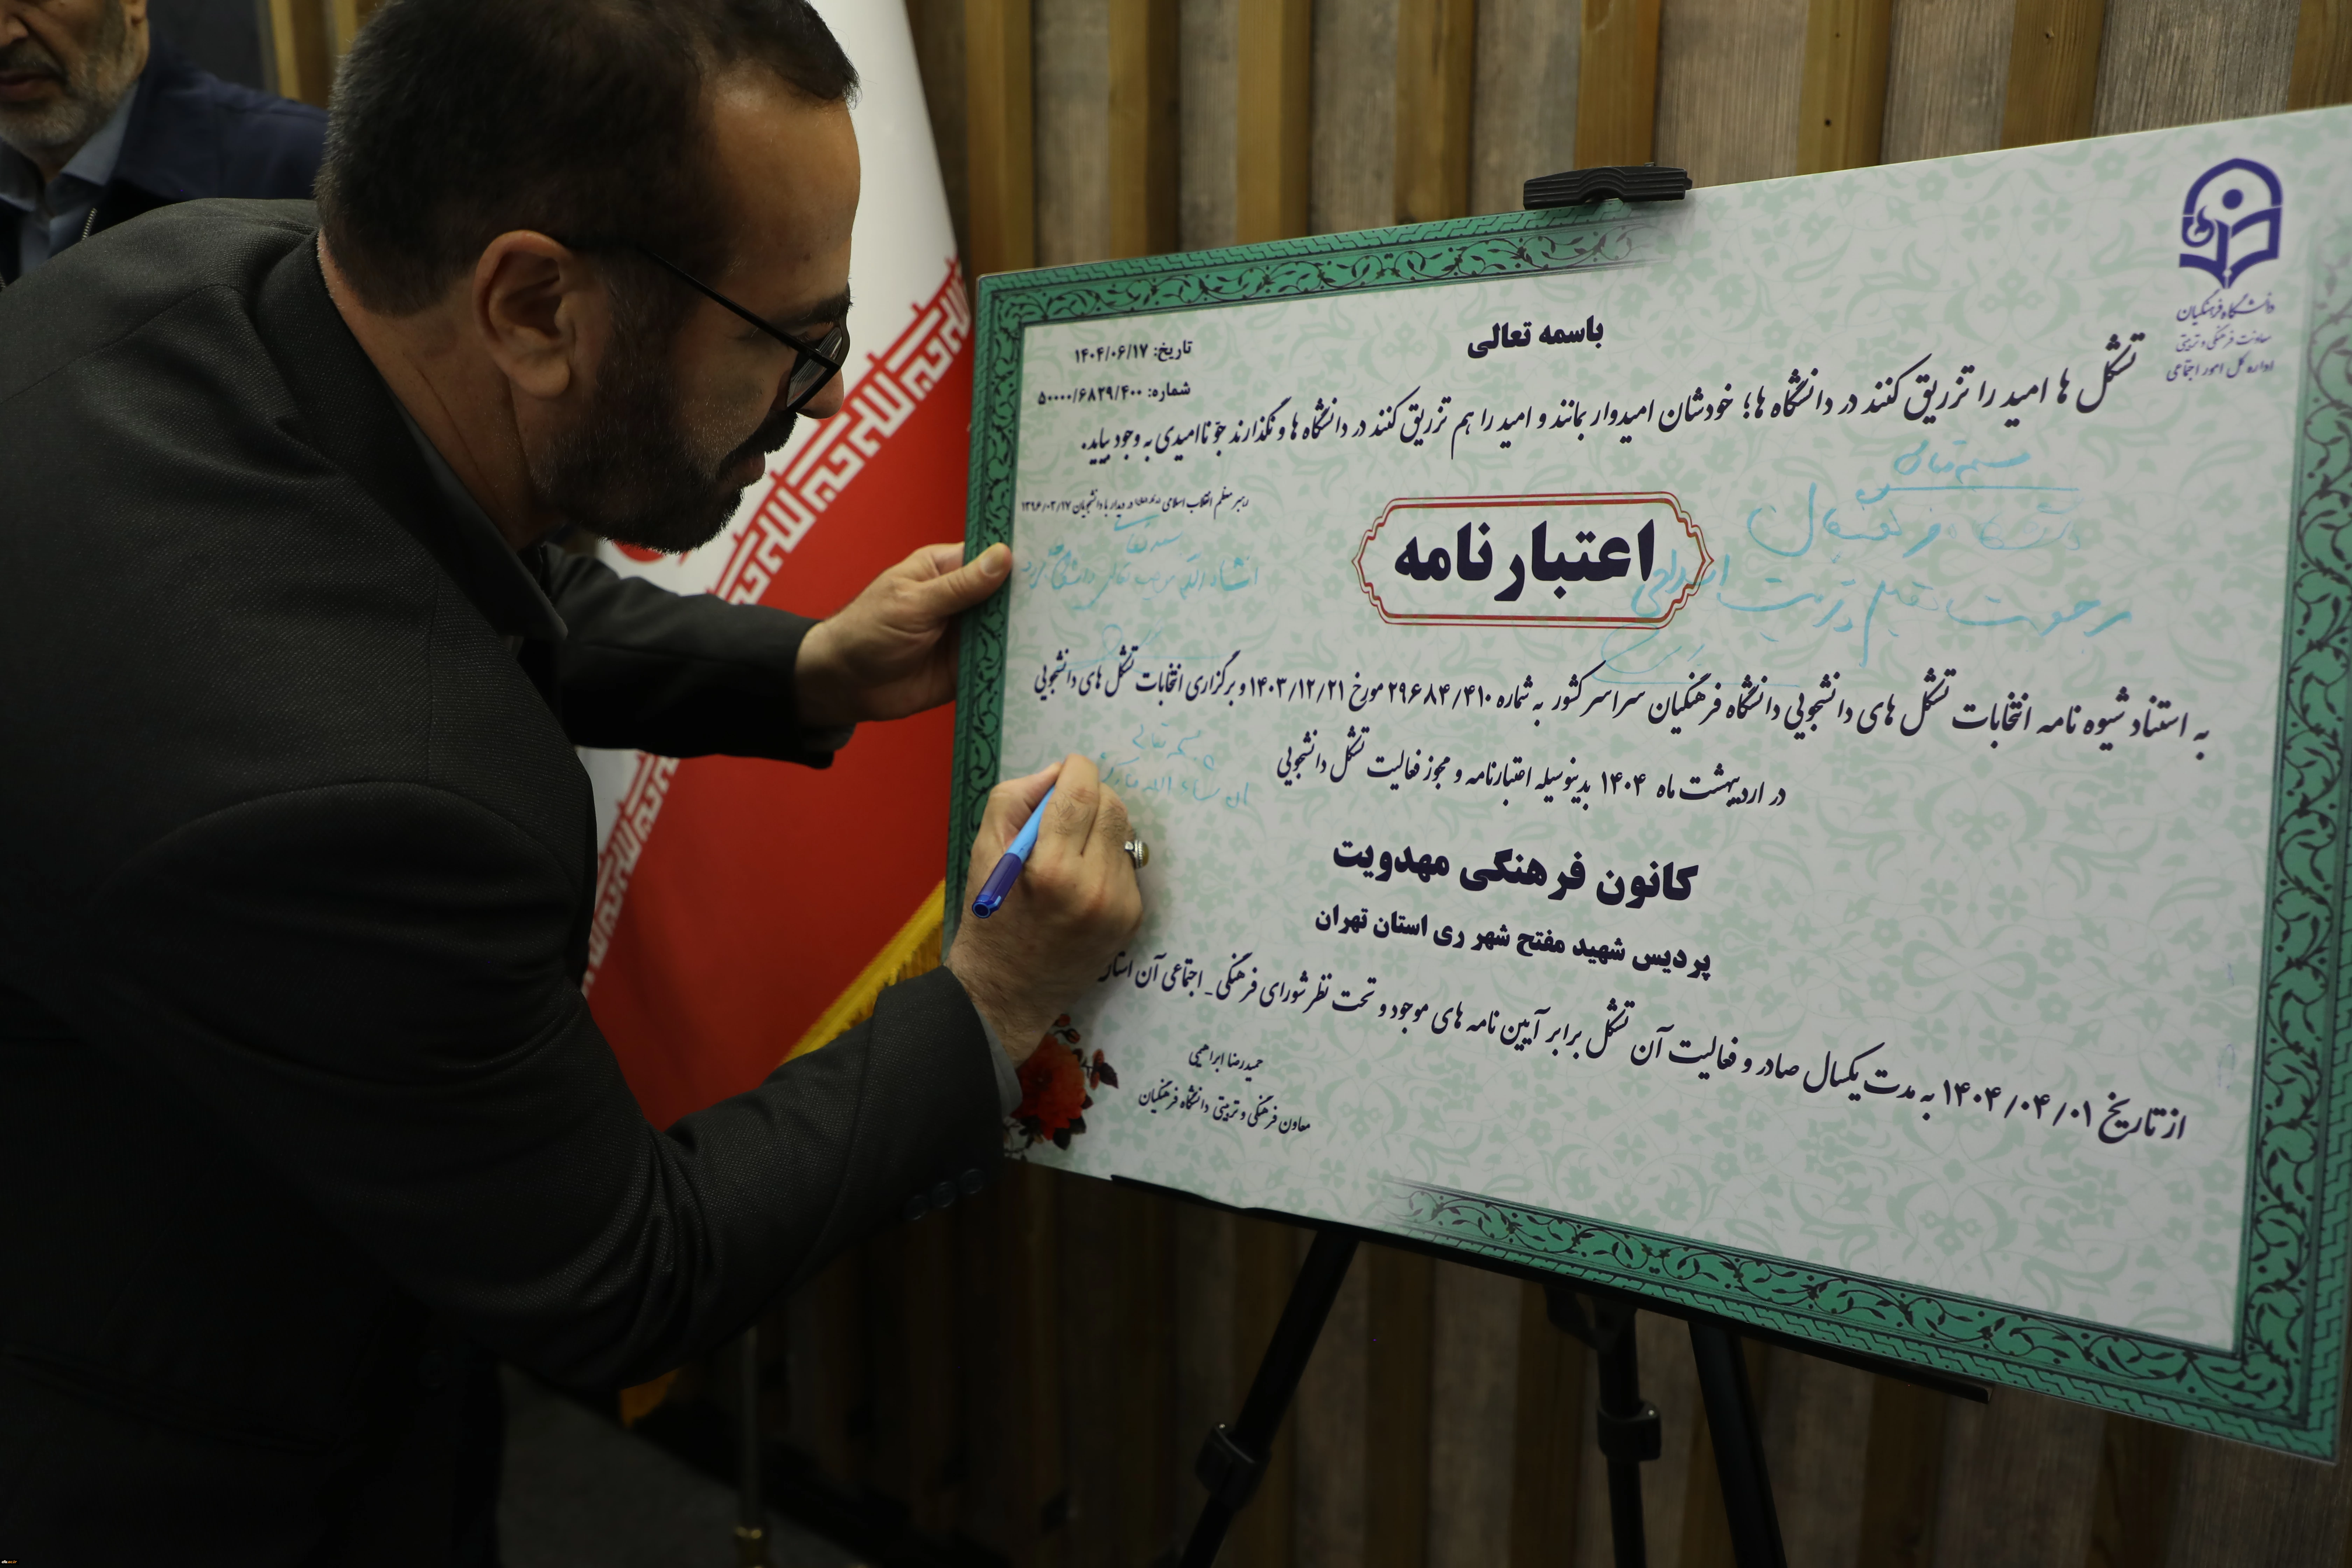 دانشگاه فرهنگیان
معاونت فرهنگی و تربیتی
اداره کل امور اجتماعی
باسمه تعالی
تاریخ: ۱۴۰۴/۰۶/۱۷
شماره: ۵۰۰۰۰/۶۸۲۹/۴۰۰
تشکل ها امید را تزریق کنند در دانشگاه ها؛ خودشان امیدوار بمانند و امید را هم تزریق کنند در دانشگاه ها و نگذارند جوّ ناامیدی به وجود بیاید.
رهبر معظم انقلاب اسلامی در دیدار با دانشجویان ۱۳۹۶/۰۳/۱۷
اعتبارنامه
به استناد شیوه نامه انتخابات تشکل های دانشجویی دانشگاه فرهنگیان سراسر کشور به شماره ۲۹۶۸۴/۴۱۰ مورخ ۱۴۰۳/۱۲/۲۱ و برگزاری انتخابات تشکل های دانشجویی
در اردیبهشت ماه ۱۴۰۴ بدینوسیله اعتبارنامه و مجوز فعالیت تشکل دانشجویی
کانون فرهنگی مهدویت
پردیس شهید مفتح شهر ری استان تهران
از تاریخ ۱۴۰۴/۰۴/۰۱ به مدت یکسال صادر و فعالیت آن تشکل برابر آیین نامه های موجود و تحت نظر شورای فرهنگی_ اجتماعی آن
حمیدرضا ابراهیمی
معاون فرهنگی و تربیتی دانشگاه فرهنگیان